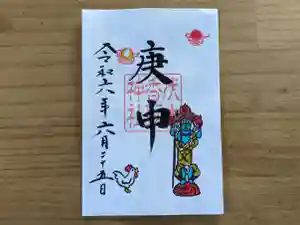 庚申
令和六年六月二十五日